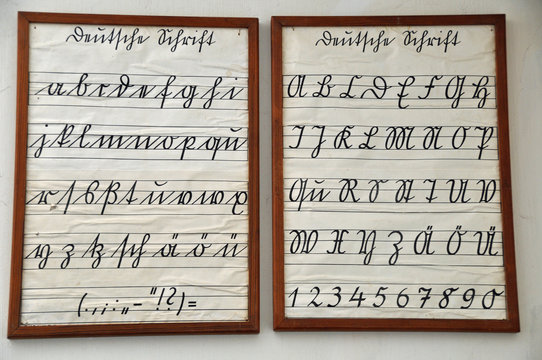 Deutsche Schrift
a b c d e f g h i
j k l m n o p qu
r ſ s ß t u v w x
y z tz sch ä ö ü
( . , ; : „ – " ! ? ) =
Deutsche Schrift
A B C D E F G H
I J K L M N O P
Qu R S St T U V
W X Y Z Ä Ö Ü
1 2 3 4 5 6 7 8 9 0